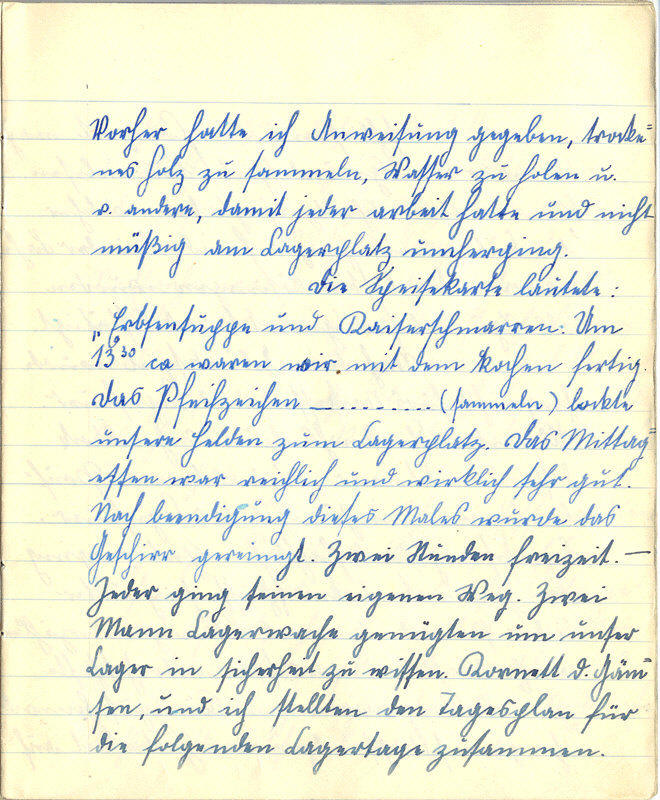 Vorher hatte ich Anweisung gegeben, trocke=
nes Holz zu sammeln, Wasser zu holen u.
v. andere, damit jeder arbeit hatte und nicht
müßig am Lagerplatz umherging.
Die Speisekarte lautete:
„Erbsensuppe und Kaiserschmarren. Um
13³⁰ ca waren wir mit dem kochen fertig.
Das Pfeifzeichen —......... (sammeln) lockte
unsere Helden zum Lagerplatz. Das Mittag=
essen war reichlich und wirklich sehr gut.
Nach beendigung dieses Males wurde das
Geschirr gereinigt. Zwei Stunden freizeit. —
Jeder ging seinen eigenen Weg. Zwei
Mann Lagerwache genügten um unser
Lager in sicherheit zu wissen. Kornett d. Gäm=
sen, und ich stellten den Tagesplan für
die folgenden Lagertage zusammen.